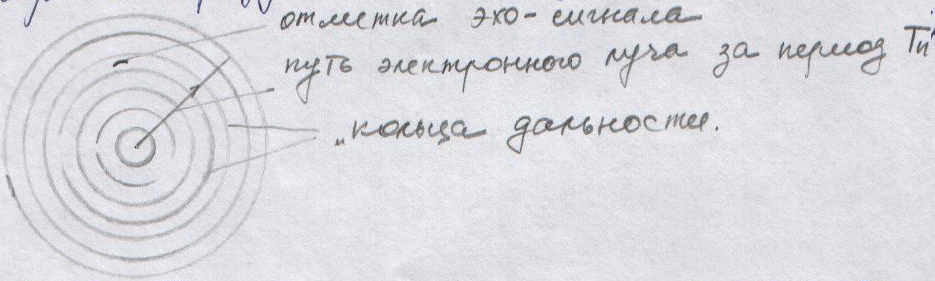 отметка эхо-сигнала
путь электронного луча за период Тп
„кольца дальности.